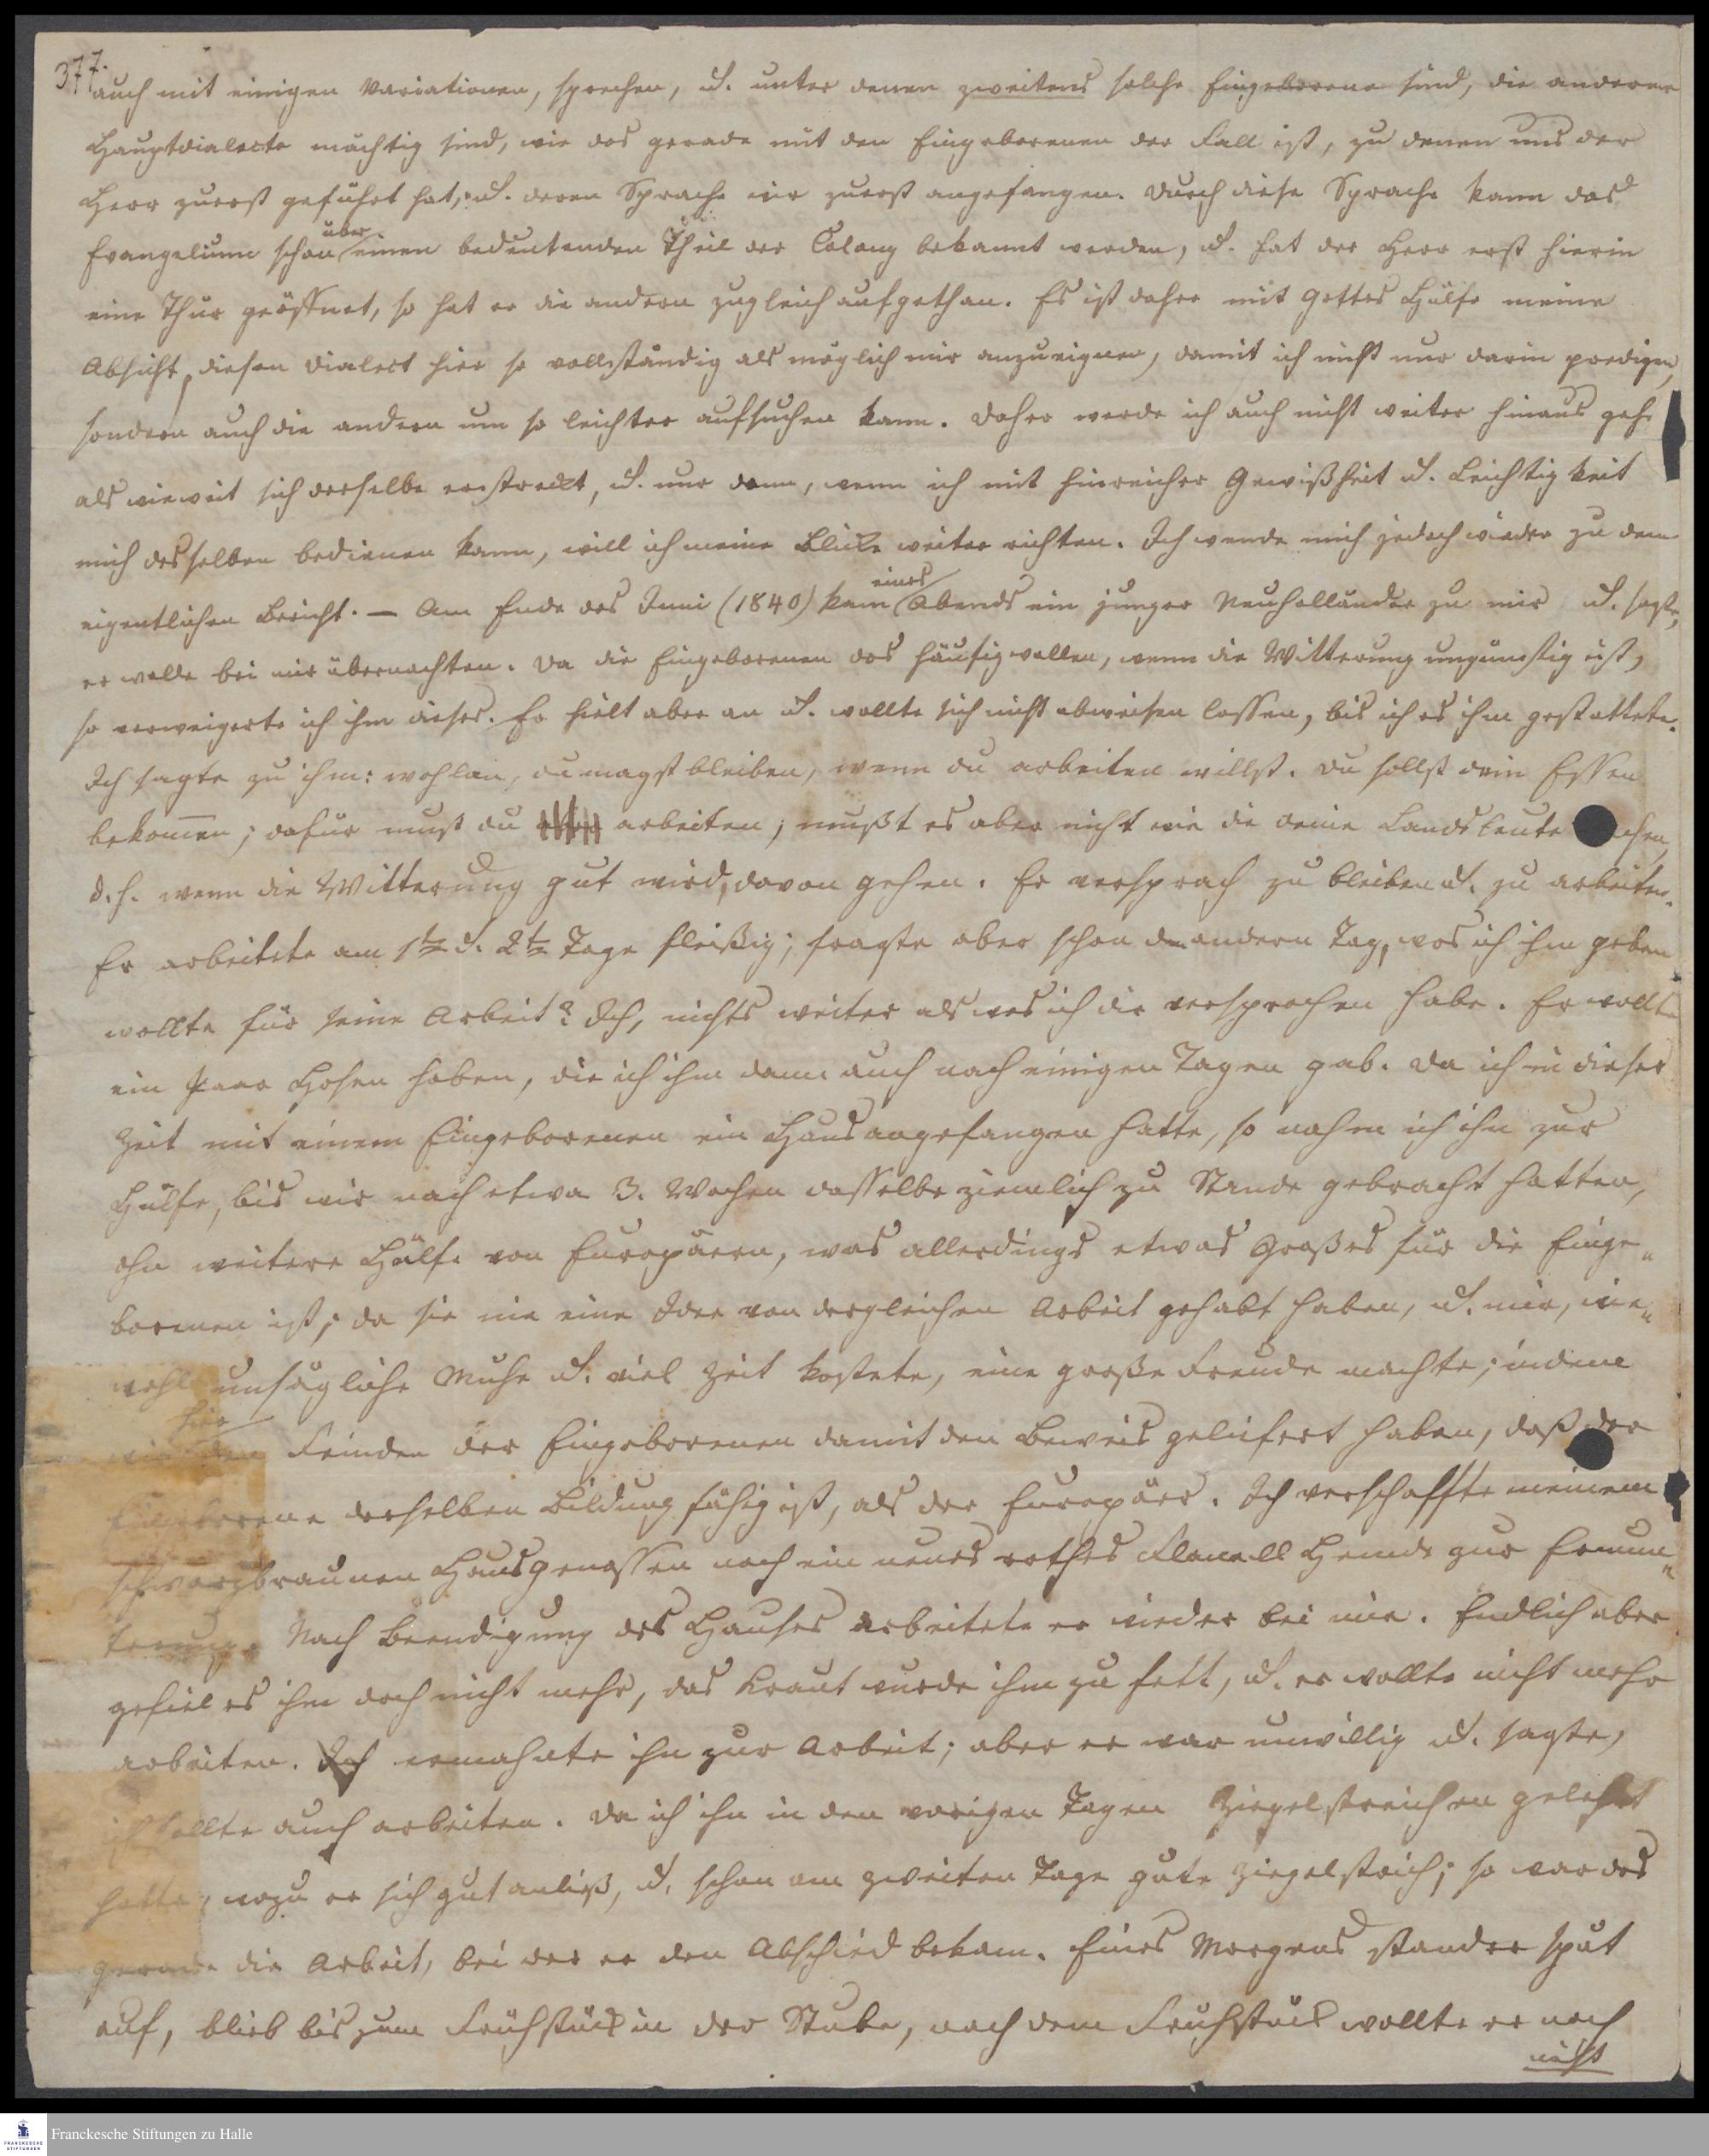 377.
auch mit einigen Variationen, sprechen, u. unter denen zweitens solche Eingeborene sind, die anderer
Hauptdialecte mächtig sind, wie das gerade mit den Eingeborenen der Fall ist, zu denen uns der
Herr zuerst geführt hat, u. deren Sprache wir zuerst angefangen. Durch diese Sprache kann das
Evangelium schon über einen bedeutenden Theil der Colony bekannt werden, u. hat der Herr erst hierin
eine Thür geöffnet, so hat er die andern zugleich aufgethan. Es ist daher mit Gottes Hülfe meine
Absicht, diesen Dialect hier so vollständig als möglich mir anzueignen, damit ich nicht nur darin predigen,
sondern auch die andern um so leichter aufsuchen kann. Daher werde ich auch nicht weiter hinaus gehe
als wieweit sich derselbe erstreckt, u. nur dann, wenn ich mit hinreicher Gewißheit u. Leichtigkeit
mich desselben bedienen kann, will ich meine Blicke weiter richten. Ich wende mich jedoch wieder zu dem
eigentlichen Bericht. — Am Ende des Juni (1840) kam eines Abends ein junger Neuholländer zu mir u. sagte,
er wolle bei mir übernachten. Da die Eingeborenen das häufig wollen, wenn die Witterung ungünstig ist,
so verweigerte ich ihm dieses. Er hielt aber an u. wollte sich nicht abweisen lassen, bis ich es ihm gestattete.
Ich sagte zu ihm: wohlan, du magst bleiben, wenn du arbeiten willst. Du sollst dein Essen
bekommen; dafür must du arbeiten; mußt es aber nicht wie die deine Landsleute
d. h. wenn die Witterung gut wird, davon gehen. Er versprach zu bleiben u. zu arbeiten.
Er arbeitete am 1ten u. 2ten Tage fleißig; fragte aber schon den andern Tag, was ich ihm geben
wollte für seine Arbeit? Ich, nichts weiter als was ich dir versprochen habe. Er wollte
ein Paar Hosen haben, die ich ihm dann auch nach einigen Tagen gab. Da ich in dieser
Zeit mit einem Eingeborenen ein Haus angefangen hatte, so nahm ich ihn zur
Hülfe, bis wir nach etwa 3. Wochen dasselbe ziemlich zu Stande gebracht hatten,
ohn weitere Hülfe von Europäern, was allerdings etwas Großes für die Einge-
bornen ist, da sie nie eine Idee von dergleichen Arbeit gehabt haben, u. mir, wie-
wohl unsägliche Mühe u. viel Zeit kostete, eine große Freude machte; indem
wir hier den Feinden der Eingeborenen damit den Beweis geliefert haben, daß der
Eingeborene derselben Bildung fähig ist, als der Europäer. Ich verschaffte meinem
schwarzbraunen Hausgenossen noch ein neues rothes Flanell Hemde zur Ermun-
terung. Nach Beendigung des Hauses arbeitete er wieder bei mir. Endlich aber
gefiel es ihm doch nicht mehr, das Kraut wurde ihm zu fett, u. er wollte nicht mehr
arbeiten. Ich ermahnte ihn zur Arbeit; aber er war unwillig u. sagte,
ich sollte auch arbeiten. Da ich ihn in den vorigen Tagen Ziegelstreichen gelehrt
hatte, wozu er sich gut anließ, u. schon am zweiten Tage gute Ziegel strich; so war das
gerade die Arbeit, bei der er den Abschied bekam. Eines Morgens stand er spät
auf, blieb bis zum Frühstück in der Stube, nach dem Frühstück wollte er noch
nicht
Franckesche Stiftungen zu Halle
FRANCKESCHE STIFTUNGEN